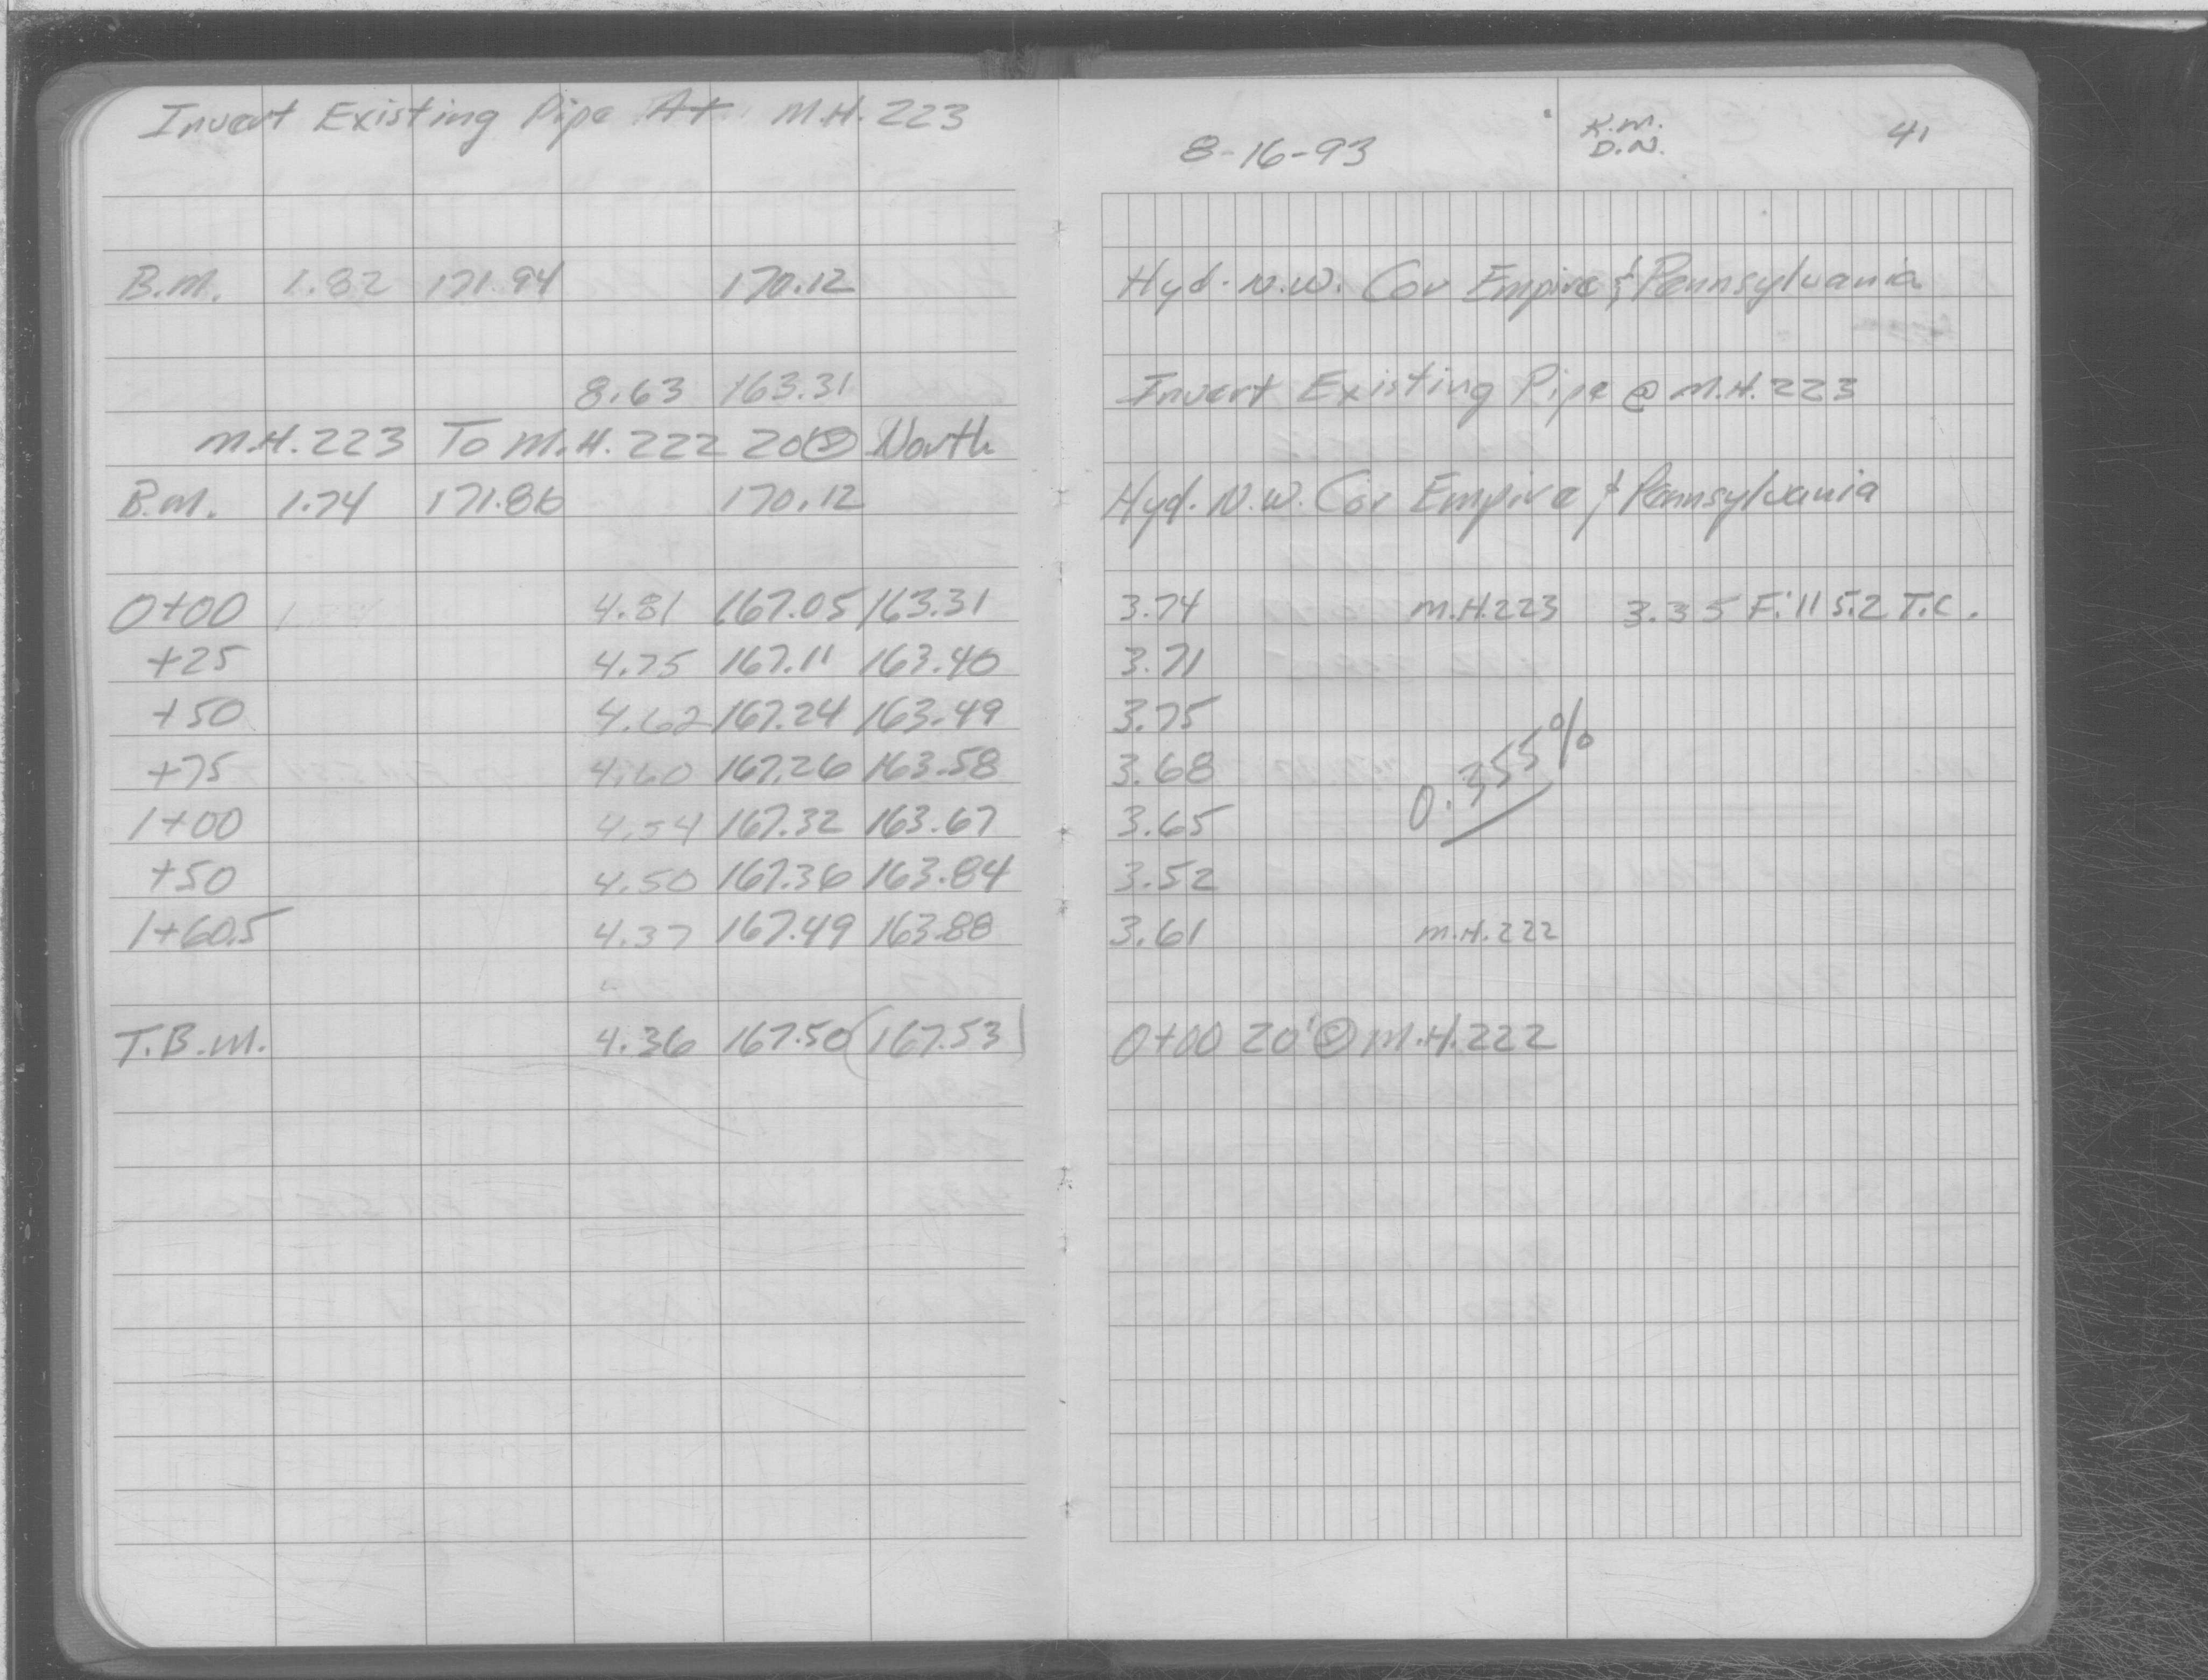 Invert Existing Pipe At M.H. 223
B.M. 1.82 171.94 170.12
8.63 163.31
M.H. 223 To M.H. 222 20' North
B.M. 1.74 171.86 170.12
0+00 4.81 167.05 163.31
+25 4.75 167.11 163.40
+50 4.62 167.24 163.49
+75 4.60 167.26 163.58
1+00 4.54 167.32 163.67
+50 4.50 167.36 163.84
1+60.5 4.37 167.49 163.88
T.B.M. 4.36 167.50 (167.53)
8-16-93
K.M.
D.N.
41
Hyd. N.W. Cor Empire & Pennsylvania
Invert Existing Pipe @ M.H. 223
Hyd. N.W. Cor Empire & Pennsylvania
3.74 M.H. 223 3.35 Fill 5.2 T.C.
3.71
3.75
3.68
0.355%
3.65
3.52
3.61 M.H. 222
0+00 20' M.H. 222